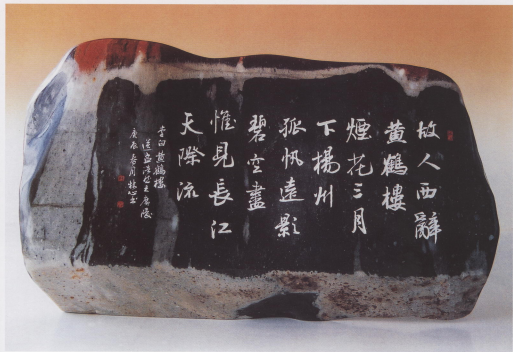 故人西辭
黄鶴樓
煙花三月
下揚州
孤帆遠影
碧空盡
惟見長江
天際流
李白黄鶴樓
送孟浩然之廣陵
庚辰春月